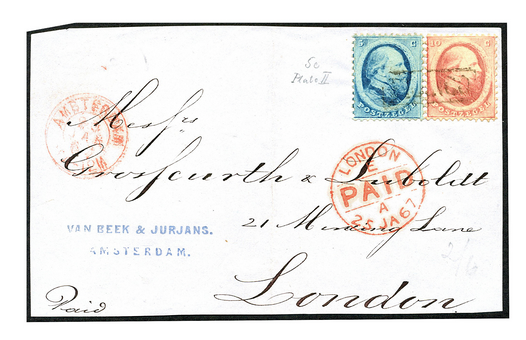 5 C
10 C
POSTZEGEL
POSTZEGEL
5c
Plate II
AMSTERDAM
Messrs
Grosfcurth & Luboldt
LONDON
E
PAID
A
25 JA 67
VAN BEEK & JURJANS.
AMSTERDAM.
21 Mincing Lane
2/6
Paid
London